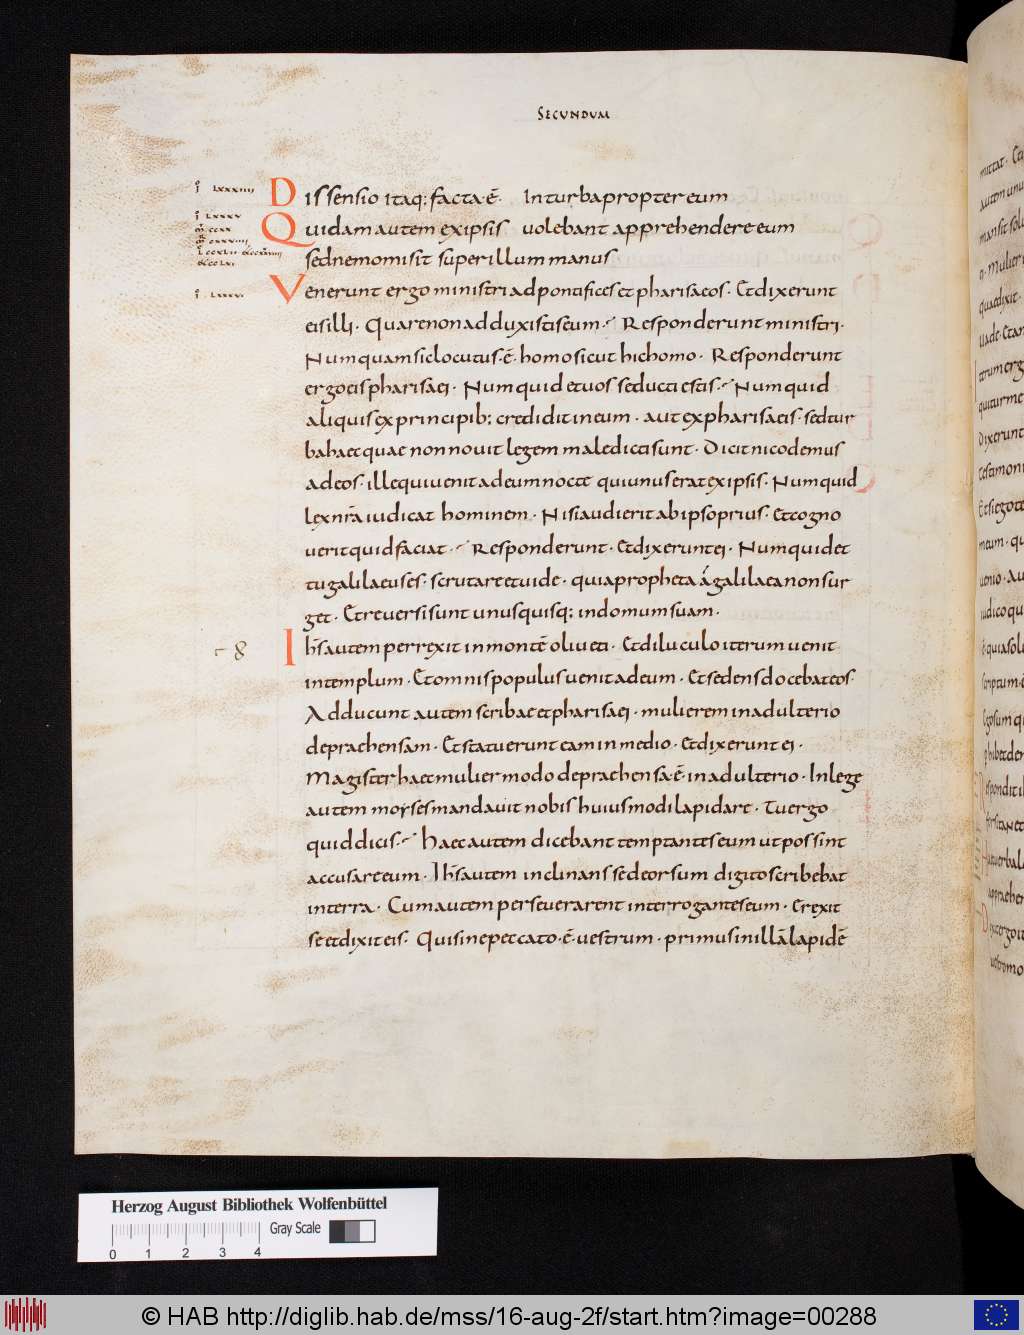 SECUNDUM
ī LXXXIIII
Dissensio itaq; facta·ē· In turba propter eum
ī LXXXV
Quidam autem ex ipsis uolebant apprehendere eum
sed nemo misit super illum manus
ī LXXXVI
Venerunt ergo ministri ad pontifices et pharisaeos· Et dixerunt
eis illi· Quare non adduxistis eum· Responderunt ministri·
Numquam sic locutus·ē· homo sicut hic homo· Responderunt
ergo eis pharisaei· Numquid et uos seducti estis· Numquid
aliquis ex principib; credidit in eum· aut ex pharisaeis· sed tur
ba haec quae non nouit legem maledicti sunt· Dicit nicodemus
ad eos· ille qui uenit ad eum nocte qui unus erat ex ipsis· Numquid
lex nr̄a iudicat hominem· Nisi audierit ab ipso prius· et cogno
uerit quid faciat· Responderunt· et dixerunt ei· Numquid et
tu galilaeus es· scrutare et uide· quia propheta á galilaea non sur
get· Et reuersi sunt unusquisq; in domum suam·
Ih̄s autem perrexit in montē oliueti· Et diluculo iterum uenit
in templum· Et omnis populus uenit ad eum· Et sedens docebat eos·
Adducunt autem scribae et pharisaei· mulierem in adulterio
deprachensam· Et statuerunt eam in medio· et dixerunt ei·
Magister haec mulier modo deprachensa·ē· in adulterio· In lege
autem moyses mandauit nobis huiusmodi lapidare· Tu ergo
quid dicis· Haec autem dicebant temptantes eum ut possint
accusare eum· Ih̄s autem inclinans se deorsum digito scribebat
in terra· Cum autem perseuerarent interrogantes eum· Erexit
se et dixit eis· Qui sine peccato·ē· uestrum· primus in illā lapidē
Herzog August Bibliothek Wolfenbüttel
Gray Scale
0 1 2 3 4
© HAB http://diglib.hab.de/mss/16-aug-2f/start.htm?image=00288